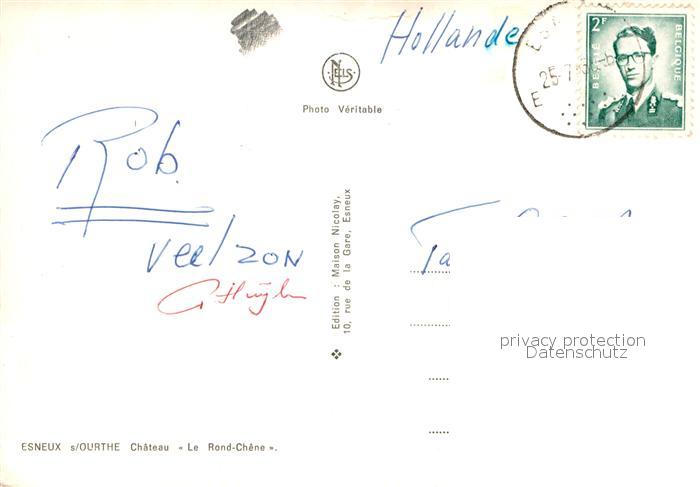 Hollande
2F
BELGIË BELGIQUE
NELS
Photo Véritable
Rob
veel zon
Ta
Edition : Maison Nicolay,
10, rue de la Gare, Esneux
privacy protection
Datenschutz
ESNEUX s/OURTHE Château « Le Rond-Chêne ».